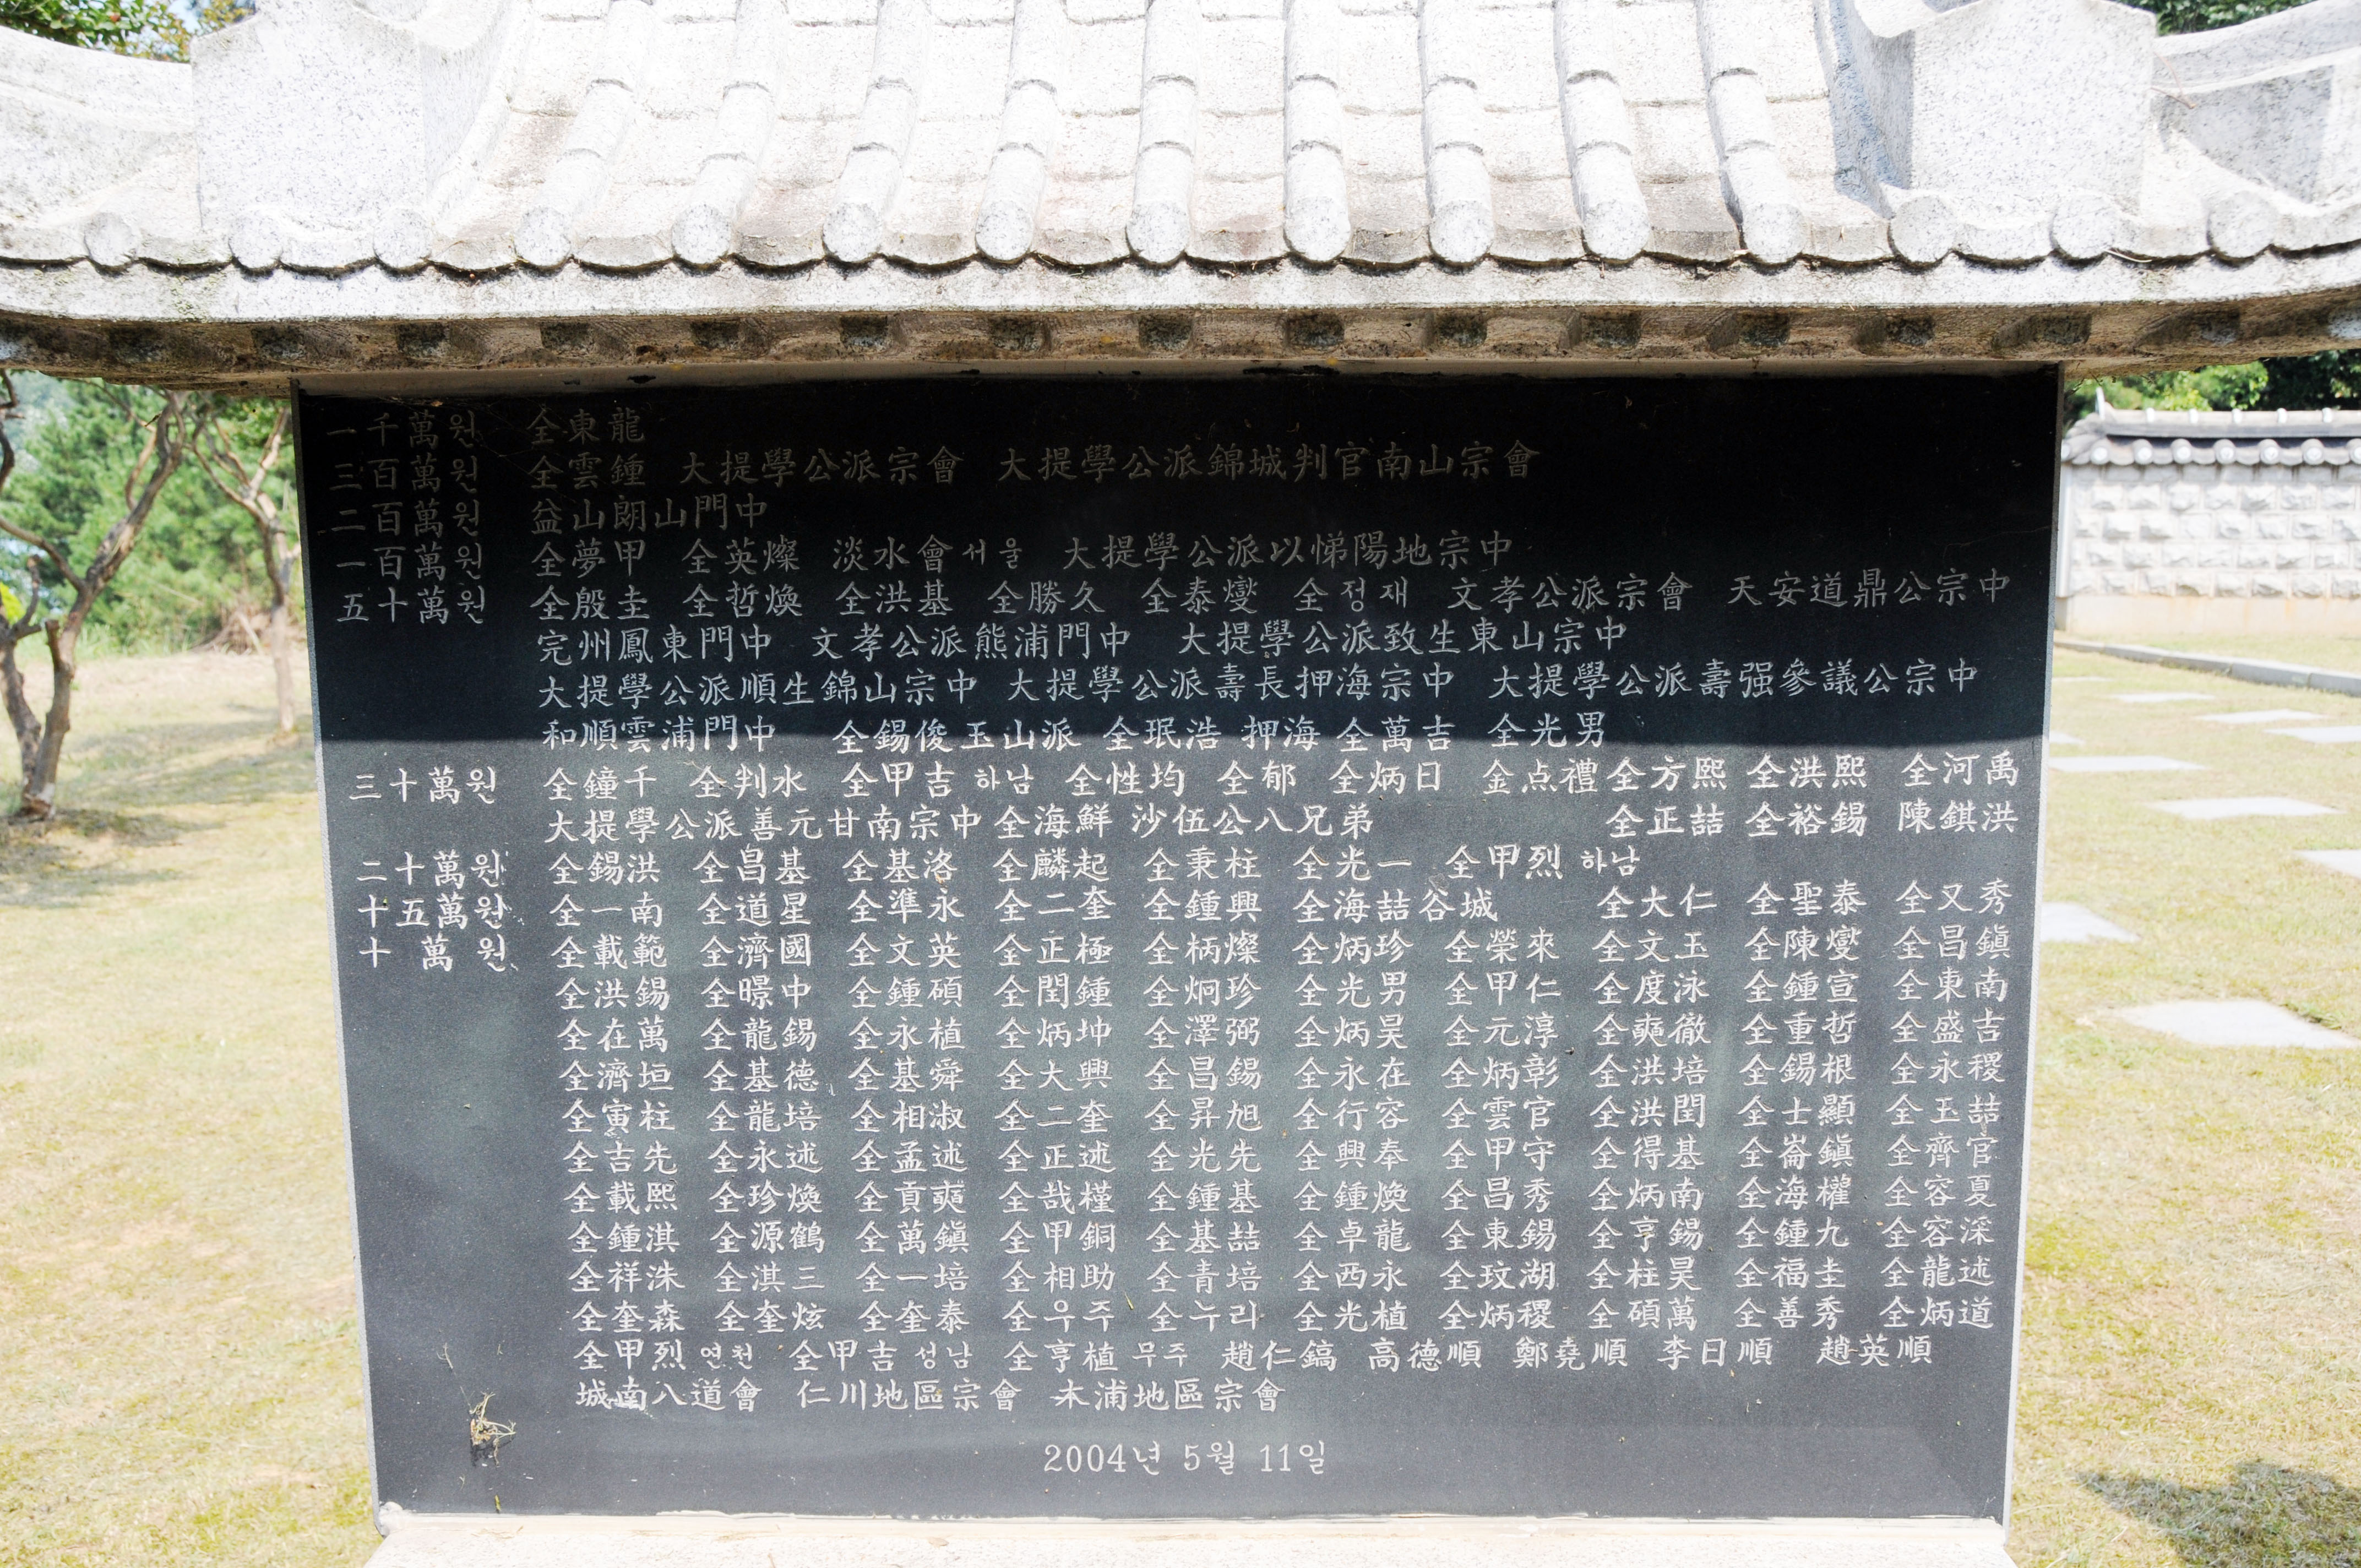 一千萬원 全東龍
三百萬원 全雲鍾 大提學公派宗會 大提學公派錦城判官南山宗會
二百萬원 益山朗山門中
一百萬원 全夢甲 全英燦 淡水會서울 大提學公派以悌陽地宗中
五十萬원 全殷圭 全哲煥 全洪基 全勝久 全泰燮 全정재 文孝公派宗會 天安道鼎公宗中
完州鳳東門中 文孝公派熊浦門中 大提學公派致生東山宗中
大提學公派順生錦山宗中 大提學公派壽長押海宗中 大提學公派壽强參議公宗中
和順雲浦門中 全錫俊玉山派 全珉浩 押海 全萬吉 全光男
三十萬원 全鐘千 全判水 全甲吉 하남 全性均 全郁 全炳日 金点禮 全方熙 全洪熙 全河禹
大提學公派善元甘南宗中 全海鮮 沙伍公八兄弟 全正喆 全裕錫 陳錤洪
二十萬원 全錫洪 全昌基 全基洛 全麟起 全秉柱 全光一 全甲烈 하남
十五萬원 全一南 全道星 全準永 全二奎 全鍾興 全海喆谷城 全大仁 全聖泰 全又秀
十萬원 全載範 全濟國 全文英 全正極 全柄燦 全炳珍 全榮來 全文玉 全陳燮 全昌鎭
全洪錫 全暻中 全鍾碩 全閏鍾 全炯珍 全光男 全甲仁 全度泳 全鍾宣 全東南
全在萬 全龍錫 全永植 全炳坤 全澤弼 全炳昊 全元淳 全奭徹 全重哲 全盛吉
全濟垣 全基德 全基舜 全大興 全昌錫 全永在 全炳彰 全洪培 全錫根 全永稷
全寅柱 全龍培 全相淑 全二奎 全昇旭 全行容 全雲官 全洪閏 全士顯 全玉喆
全吉先 全永述 全孟述 全正述 全光先 全興奉 全甲守 全得基 全崙鎭 全齊官
全載熙 全珍煥 全貢奭 全哉槿 全鍾基 全鍾煥 全昌秀 全炳南 全海櫂 全容夏
全鍾淇 全源鶴 全萬鎭 全甲銅 全基喆 全卓龍 全東錫 全亨錫 全鍾九 全容深
全祥洙 全淇三 全一培 全相助 全青培 全西永 全玟湖 全柱昊 全福圭 全龍述
全奎森 全奎炫 全奎泰 全우주 全누리 全光植 全炳稷 全碩萬 全善秀 全炳道
全甲烈 연천 全甲吉 성남 全亨植 무주 趙仁鎬 高德順 鄭堯順 李日順 趙英順
城南八道會 仁川地區宗會 木浦地區宗會
2004년 5월 11일